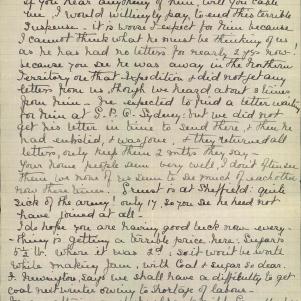 If you hear anything of him, will you cable
me, I would willingly pay, to end this terrible
suspense. It is worse I expect for him because
I cannot think what he must be thinking of us
as he has had no letters for nearly 2 yrs now!
because you see he was away in the Northern
Territory on that Expedition & did not get any
letters from us, though we heard about 3 times
from him – He expected to find a letter
for him at G.P.O. Sydney but we did not
get his letter in time to send there, & then he
had enlisted, & was gone, & they returned all
letters, only keep them 2 mths they say –
Your home people seem very well, I don't often see
them we none of us seem to see much of each other
now these times. Ernest is at Sheffield quite
sick of the army! only 17, so you see he need not
have joined at all –
I do hope you are having good luck now – every
– thing is getting a terrible price here, Sugar is
5½ lb. where it was 2d, so it wont be worth
while making Jam, with Coal & sugar so dear.
says we shall have a difficulty to get
coal next winter owing to Shortage of labour –